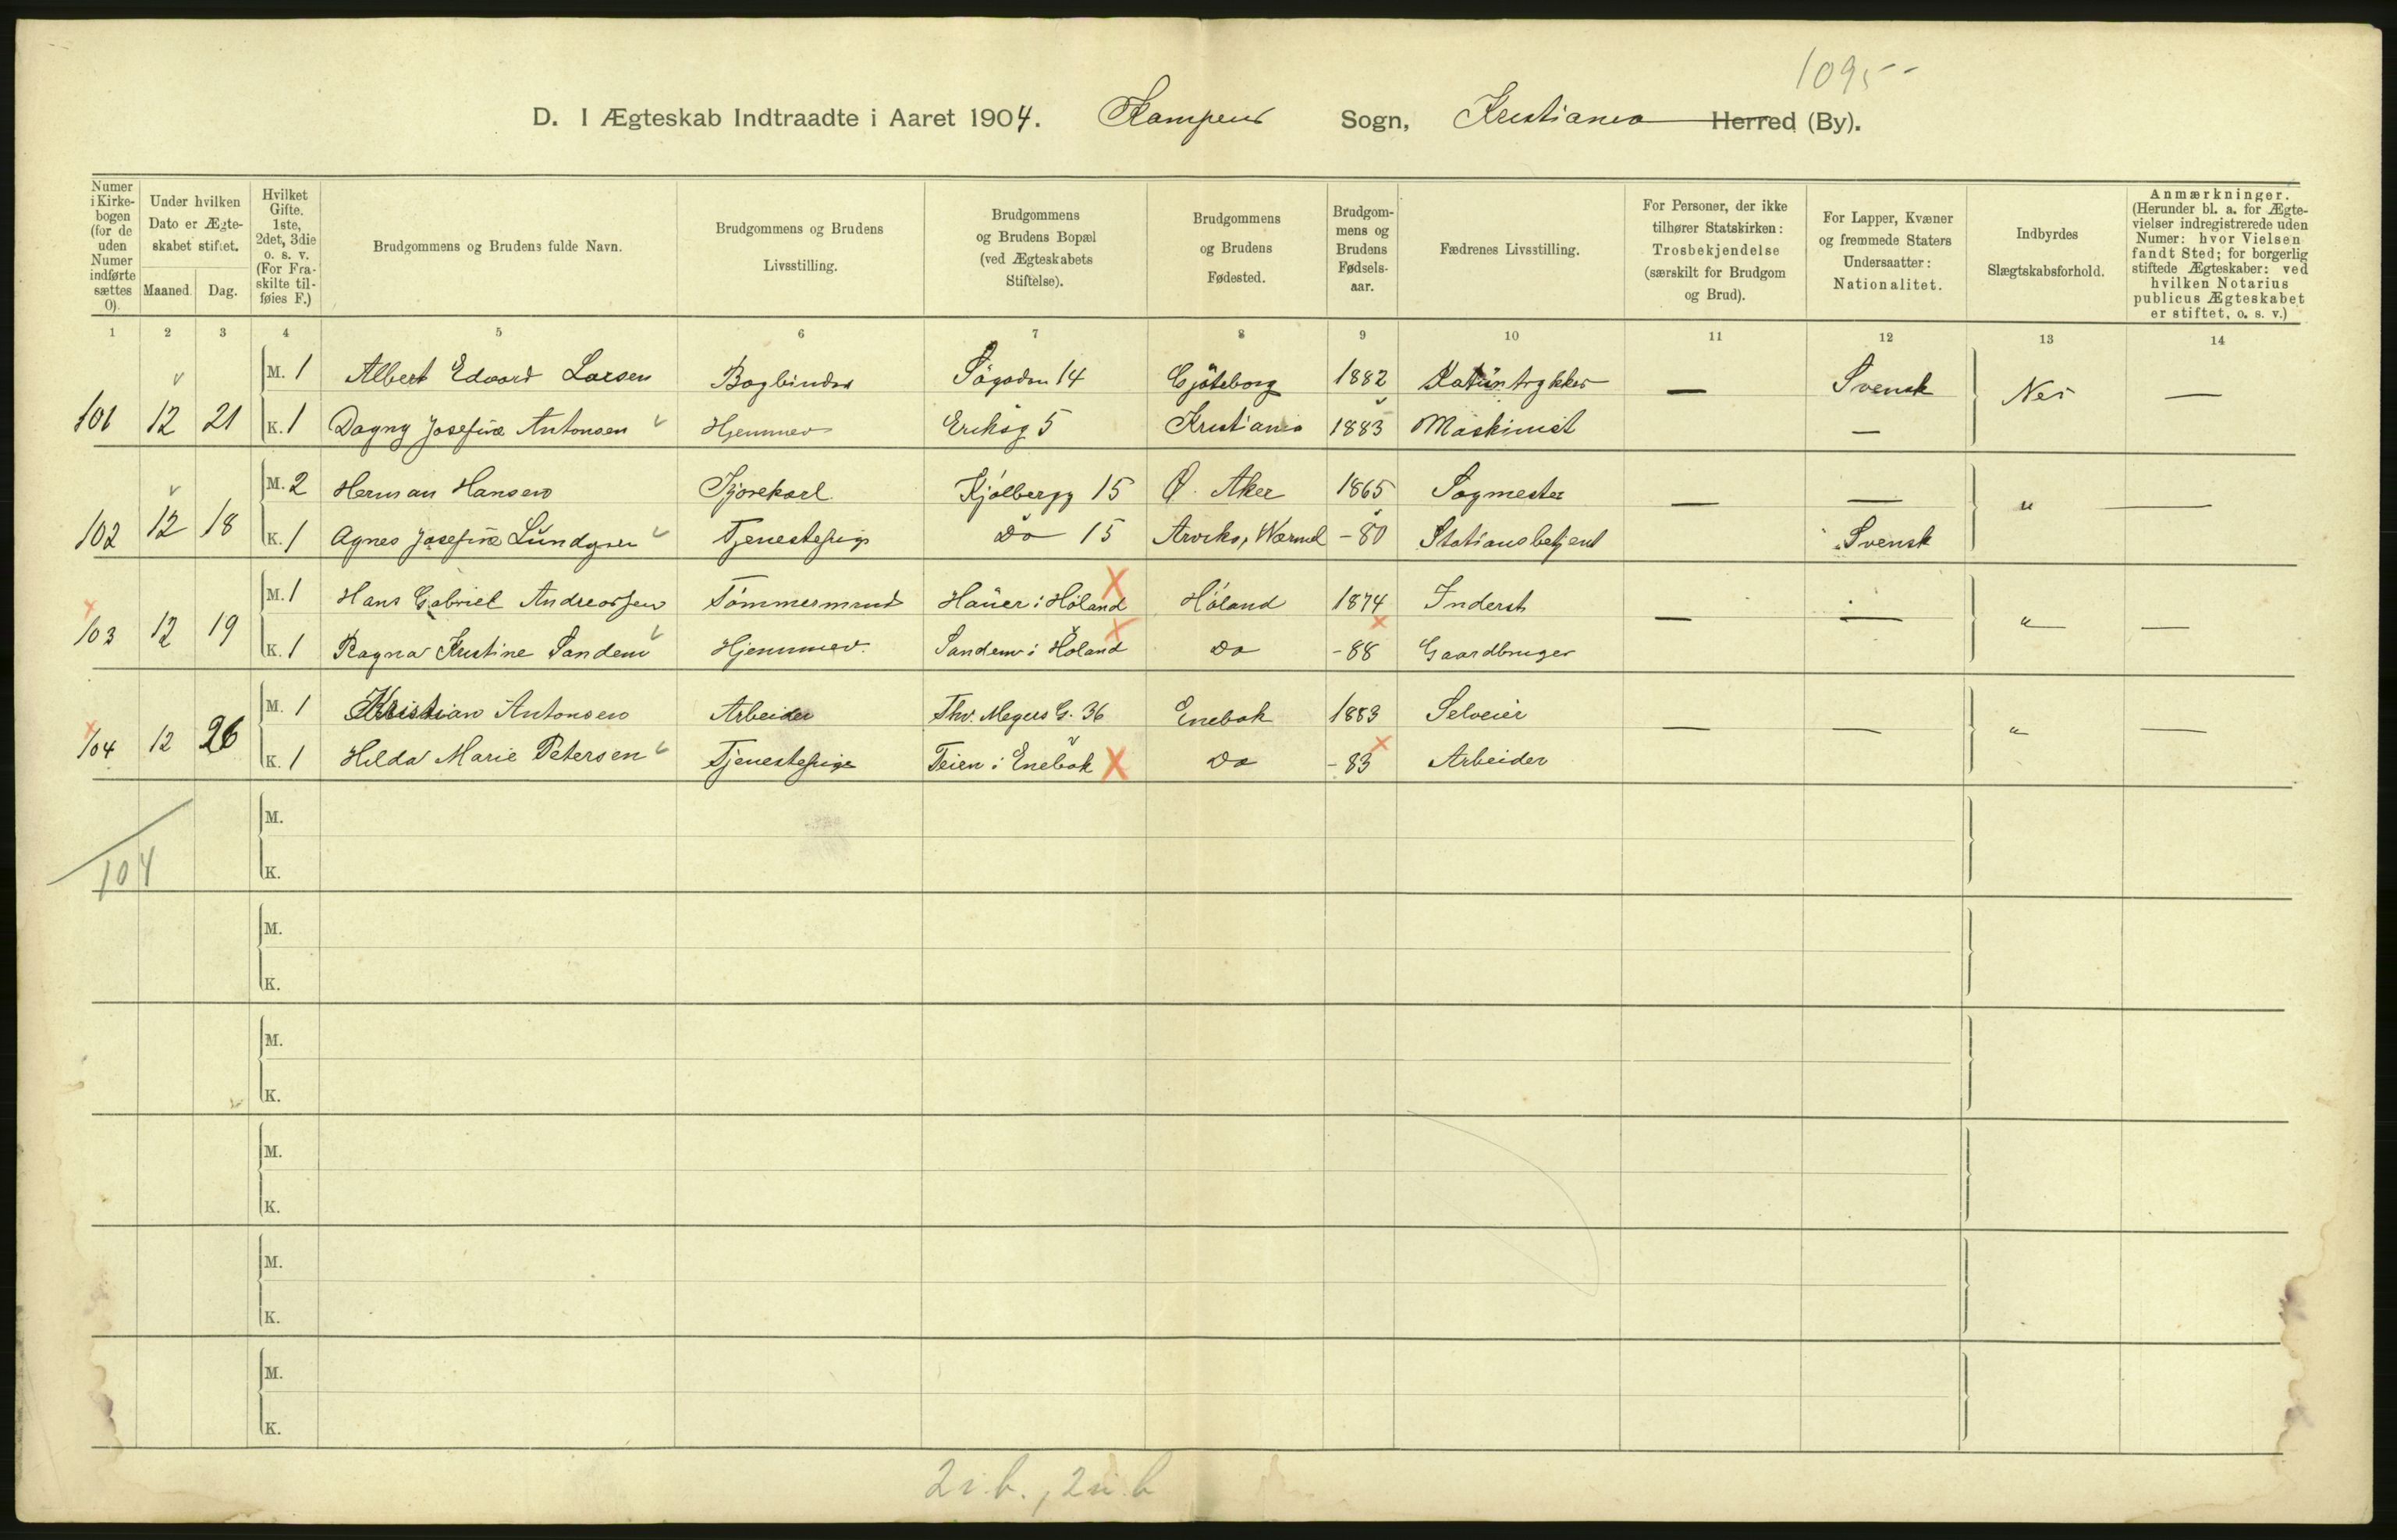 1095
D. I Ægteskab Indtraadte i Aaret 1904. Kampens Sogn, Kristiania Herred (By).
Numer i Kirkebogen (for de uden Numer indførte sættes 0).
Under hvilken Dato er Ægteskabet stiftet.
Maaned. Dag.
Hvilket Gifte. 1ste, 2det, 3die o. s. v. (For Fraskilte tilføies F.)
Brudgommens og Brudens fulde Navn.
Brudgommens og Brudens Livsstilling.
Brudgommens og Brudens Bopæl (ved Ægteskabets Stiftelse).
Brudgommens og Brudens Fødested.
Brudgommens og Brudens Fødselsaar.
Fædrenes Livsstilling.
For Personer, der ikke tilhører Statskirken: Trosbekjendelse (særskilt for Brudgom og Brud).
For Lapper, Kvæner og fremmede Staters Undersaatter: Nationalitet.
Indbyrdes Slægtskabsforhold.
Anmærkninger. (Herunder bl. a. for Ægtevielser indregistrerede uden Numer: hvor Vielsen fandt Sted; for borgerlig stiftede Ægteskaber: ved hvilken Notarius publicus Ægteskabet er stiftet, o. s. v.)
1 2 3 4 5 6 7 8 9 10 11 12 13 14
M. 1 Albert Edvard Larsen Bogbinder 14 Gjöteborg 1882 Katüntrykker — Svensk Nei —
101 12 21 K. 1 Dagny Josefine Antonsen Hjemmev Eriksg 5 Kristiania 1883 Maskinist —
M. 2 Herman Hansen Kjörekarl Kjölbergg 15 Ø. Aker 1865 Sagmester — — " —
102 12 18 K. 1 Agnes Josefine Lündgren Tjenestepige Do 15 Arvika, Wærmel - 80 Stationsbetjent Svensk
M. 1 Hans Gabriel Andreassen Tömmermand Haüer i Höland Höland 1874 Inderst — — " —
103 12 19 K. 1 Ragna Kristine Sandem Hjemmev. Sandem i Höland Do - 88 Gaardbruger
M. 1 Kristian Antonsen Arbeider Thv. Meyers G. 36 Enebak 1883 Selveier — — " —
104 12 26 K. 1 Hilda Marie Petersen Tjenestepige Teien i Enebak Do - 83 Arbeider
M.
104 K.
M.
K.
M.
K.
M.
K.
M.
K.
M.
K.
2 i.b., 2 u.b